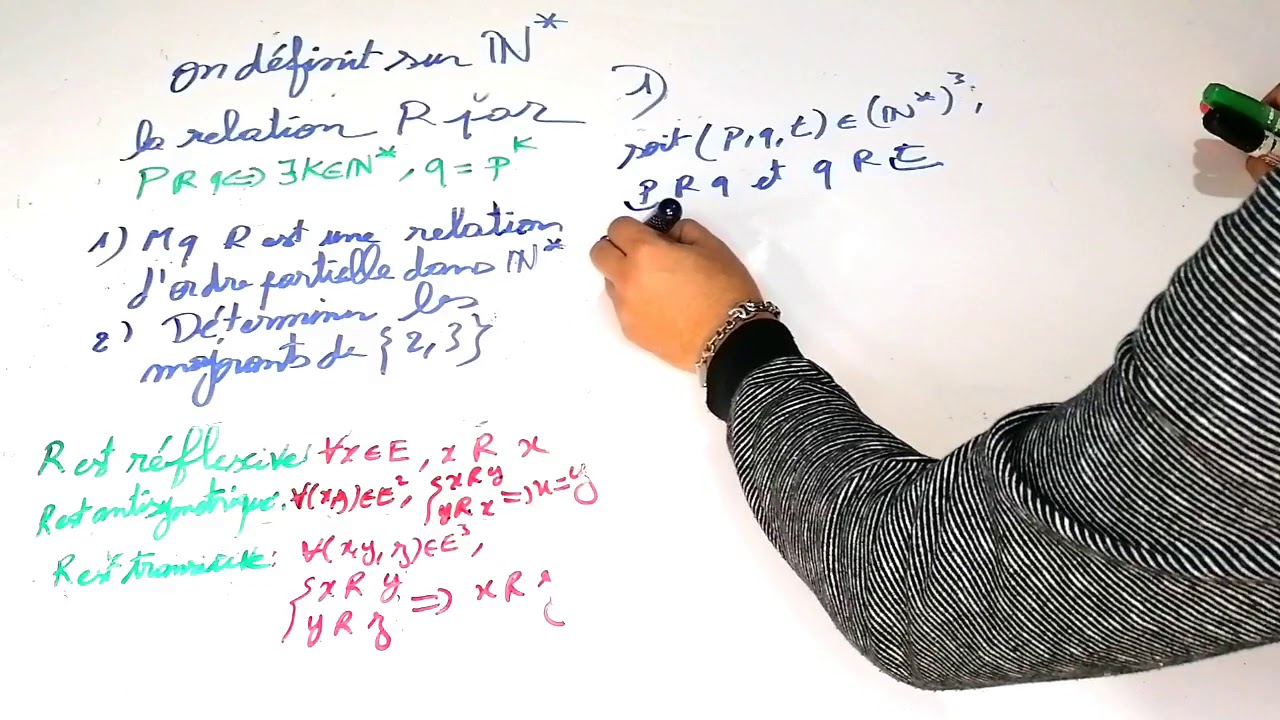 on définit sur ℕ*
la relation R par
P R q ⇔ ∃K∈ℕ*, q = p^K
1) Mq R est une relation
d'ordre partielle dans ℕ*
2) Déterminer les
majorants de {2,3}
R est réflexive: ∀x∈E, x R x
R est antisymétrique: ∀(x,y)∈E², {xRy
yRx ⇒ x=y
R est transitive: ∀(x,y,z)∈E³,
{x R y
y R z ⇒ x R z
1)
soit (P,q,t) ∈ (ℕ*)³;
P R q et q R t